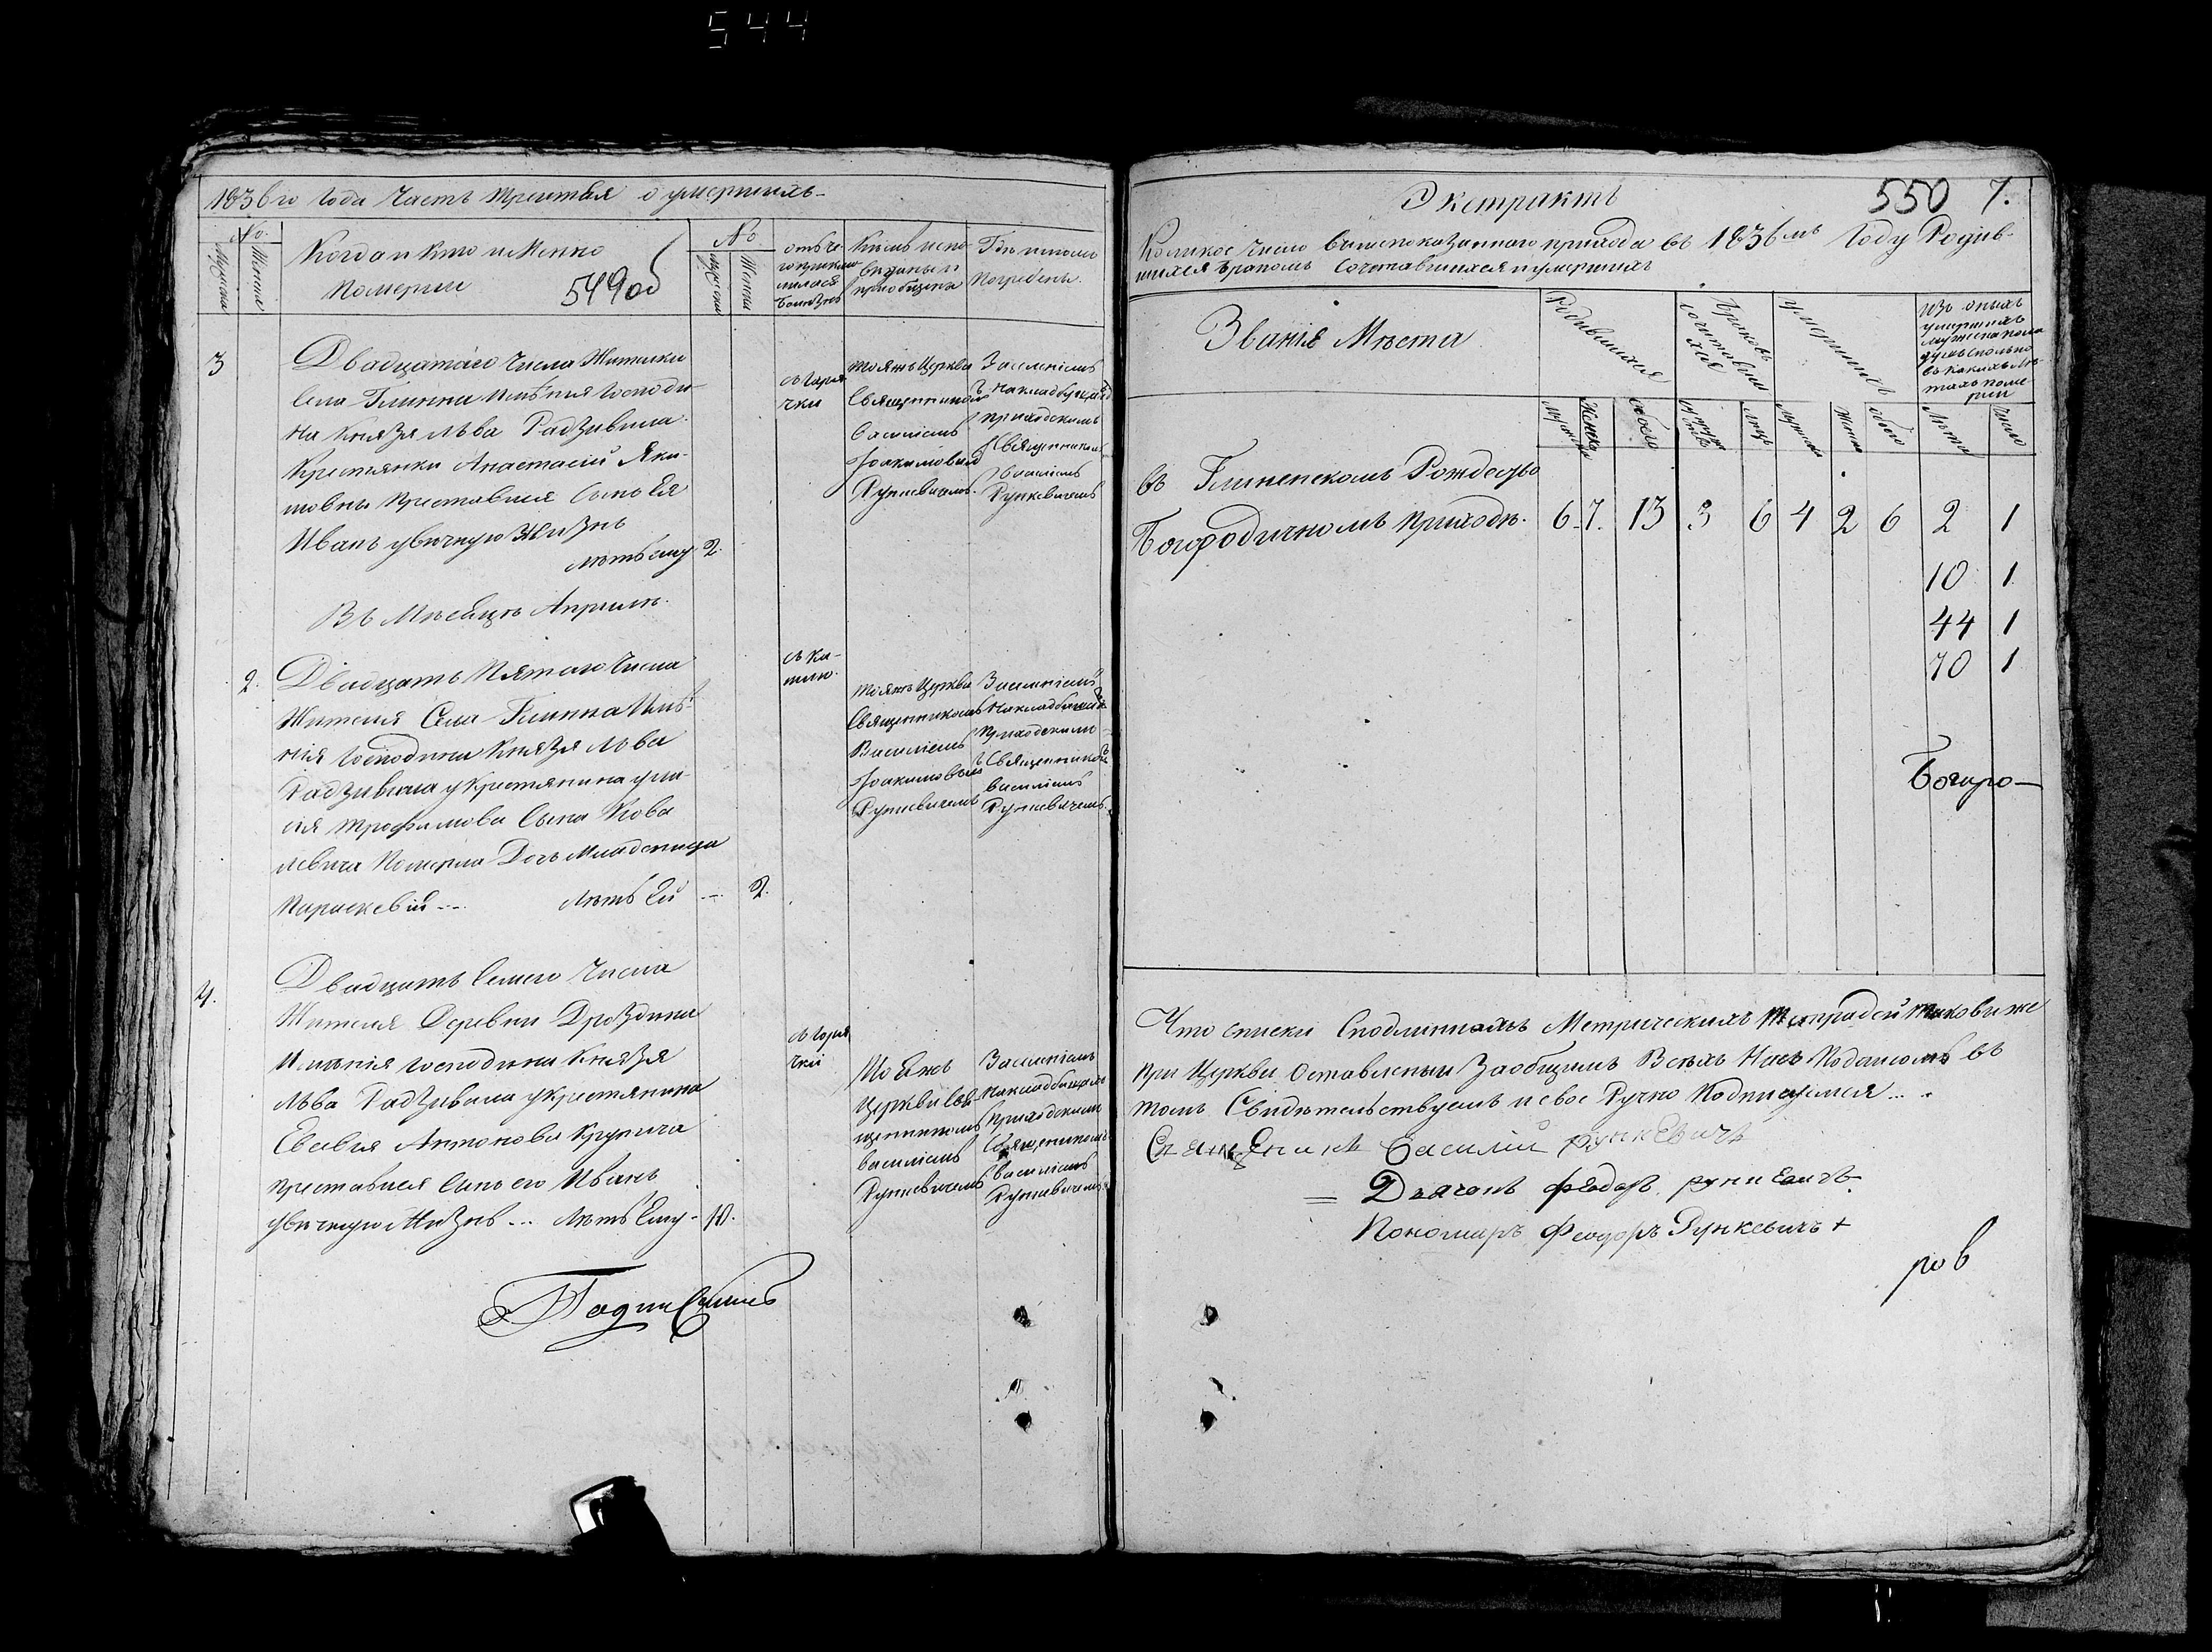 544
1836го Года Часть третьая о умершихъ
№
Мужска
Женска
Когда и кто имянно
померли
549об
№
Мужска
Женска
отъ че-
го приклю-
чилась
болезнь
Кѣмъ испо-
виданы и
приобщены
Гдѣ и кѣмъ
погребены.
3
Двадцатаго Числа Жителки
села Глинки имѣния Господи-
на Князя Льва Радзивила
Крестянки Анастасій Яки-
мовны преставился Сынъ Ея
Иванъ увичную Жизнь
лѣтъ ему 2.
съ горя-
чки
тояжъ Церкви
Священникомъ
Василіемъ
Іоакимовымъ
Рункевичемъ.
Заселеніемъ
на кладбищѣ
приходскимъ
Священникомъ
Василіемъ
Рункевичемъ
Въ Мѣсяцѣ Априлѣ.
2.
Двадцать Пятаго Числа
Жителя Села Глинка Имѣ-
нія Господина Князя Льва
Радзивила у Крестянина
Трофимова Сына Кова
левича Померла Дочь Младеница
Параскевія --- Лѣтъ Ей --- 2.
съ ка-
шлю.
тояжъ Церкви
Священникомъ
Василіемъ
Іоакимовымъ
Рункевичемъ
Заселеніемъ
на кладбищѣ
Приходскимъ
Священникомъ
Василіемъ
Рункевичемъ.
4.
Двадцать Семого Числа
Жителя Деревни Дроздина
Имѣнія Господина Князя
Льва Радзивила у Крестянина
Евсевія Антонова Крупича
преставился Сынъ его Иванъ
увичную Жизнь --- Лѣтъ Ему - 10.
съ горя
чкі
Тояжъ
Церкви Свя-
щенникомъ
Василіемъ
Рункевичемъ
Заселеніемъ
на кладбищѣ
Приходскимъ
Священникомъ
Василіемъ
Рункевичемъ.
Экстрактъ
550 7.
Коликое Число вышепоказаннаго прихода въ 1836мъ Году Родив-
шихся Бракомъ Сочетавшихся и умершихъ
Званія Мѣста
Родившихся
Бракомъ
сочетавши
хся
умершихъ
Изъ оныхъ
умершихъ
мужеска пола
душъ сколько
въ какихъ лѣ-
тахъ поме-
рли
Мужска
Женска
обоего
лицъ
Мужска
Женска
обоего
Лѣта
Число
въ Глиненскомъ Рождество
Богородичномъ приходѣ. 6. 7. 13 3 6 4 2 6 2 1
10 1
44 1
70 1
Богоро-
Что списки Сподлинныхъ Метрическихъ Тетрадей таковы же
при Церкви Оставлены Заобщимъ Всѣхъ Насъ Подписомъ въ
томъ Свидѣтельствуемъ и свое Ручно Подписуемся ...
Священникъ Василій Рункевичъ
= Дьячокъ Феодоръ Рункевичъ
Пономаръ Феодоръ Рункевичъ +
ров